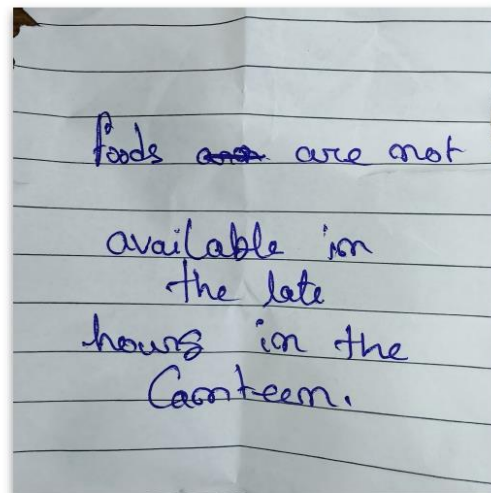 foods are not
available in
the late
hours in the
Canteen.